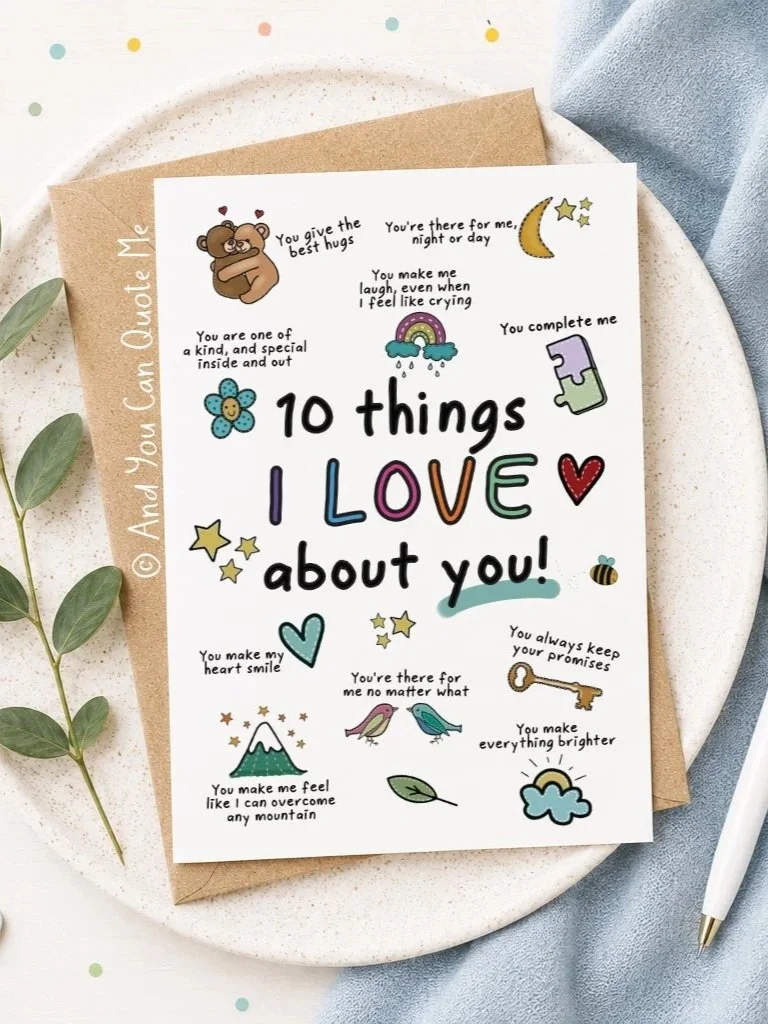 © And You Can Quote Me
You give the
best hugs
You're there for me,
night or day
You make me
laugh, even when
I feel like crying
You are one of
a kind, and special
inside and out
You complete me
10 things
I LOVE
about you!
You make my
heart smile
You're there for
me no matter what
You always keep
your promises
You make me feel
like I can overcome
any mountain
You make
everything brighter